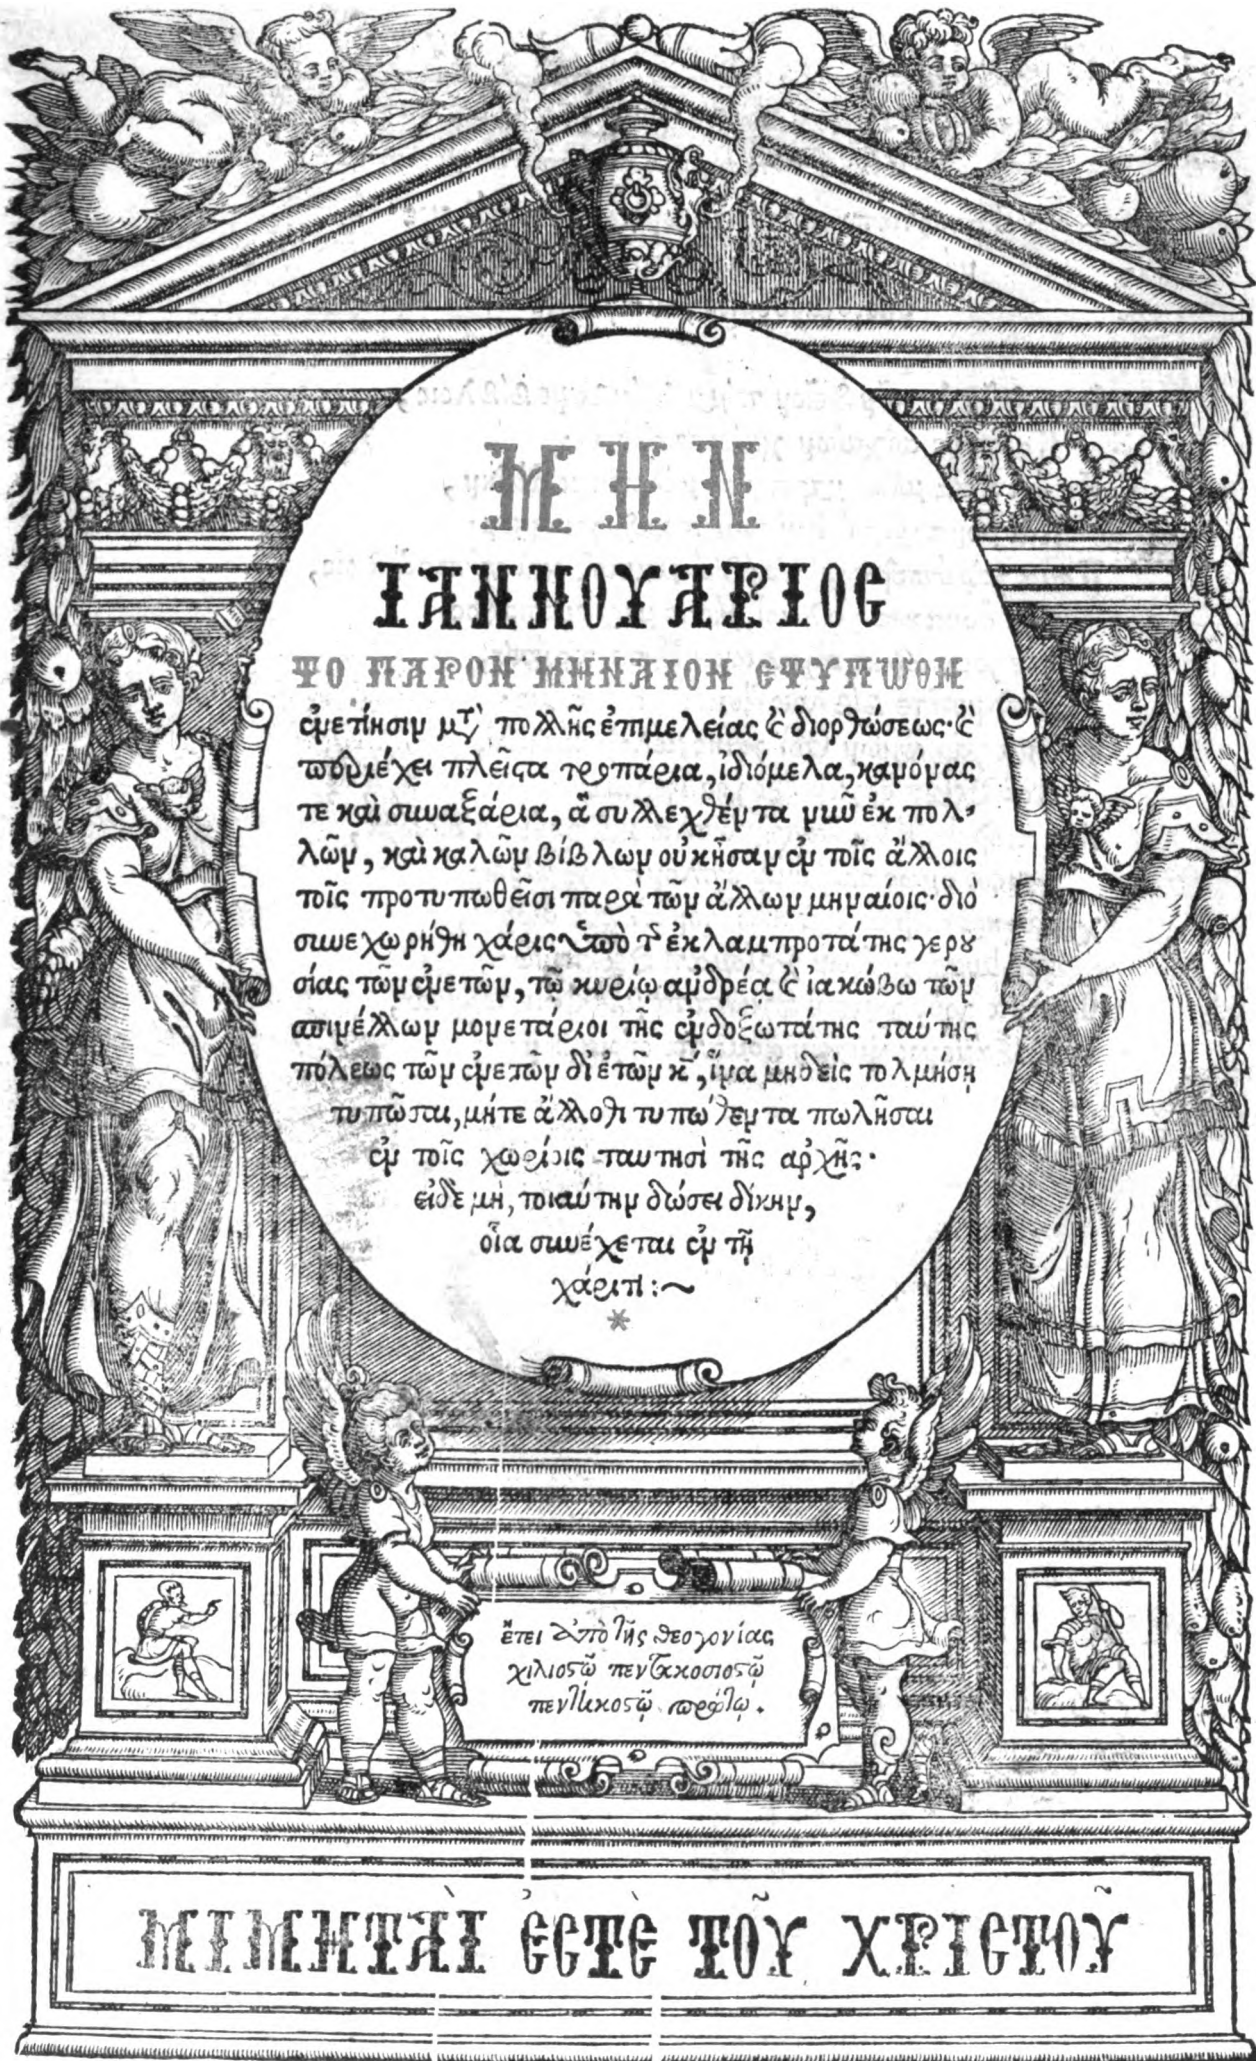 ΜΗΝ
ΙΑΝΝΟΥΑΡΙΟC
ΤΟ ΠΑΡΟΝ ΜΗΝΑΙΟΝ ΕΤΥΠΩΘΗ
ἐνετίησιν μετὰ πολλῆς ἐπιμελείας καὶ διορθώσεως· καὶ
περιέχει πλεῖστα τροπάρια, ἰδιόμελα, κανόνας
τε καὶ συναξάρια, ἃ συλλεχθέντα νῦν ἐκ πολ-
λῶν, καὶ καλῶν βίβλων οὐκ ἦσαν ἐν τοῖς ἄλλοις
τοῖς προτυπωθεῖσι παρὰ τῶν ἄλλων μηναίοις· διὸ
συνεχωρήθη χάρις ὑπὸ τῆς ἐκλαμπροτάτης γερου
σίας τῶν ἐνετῶν, τῷ κυρίῳ ἀνδρέᾳ καὶ ἰακώβω τῶν
σπινέλλων μονετάριοι τῆς ἐνδοξωτάτης ταύτης
πόλεως τῶν ἐνετῶν δι ἐτῶν κʹ, ἵνα μηθεὶς τολμήσῃ
τυπῶσαι, μήτε ἄλλοθι τυπωθέντα πωλῆσαι
ἐν τοῖς χωρίοις ταυτησὶ τῆς ἀρχῆς·
εἰδὲ μὴ, τοιαύτην δώσει δίκην,
οἵα συνέχεται ἐν τῇ
χάριτι:~
*
ἔτει ἀπὸ τῆς θεογονίας
χιλιοστῷ πεντακοσιοστῷ
πεντηκοστῷ πρώτῳ.
ΜΙΜΗΤΑῚ ἘCΤῈ ΤΟῦ ΧΡΙCΤΟῦ